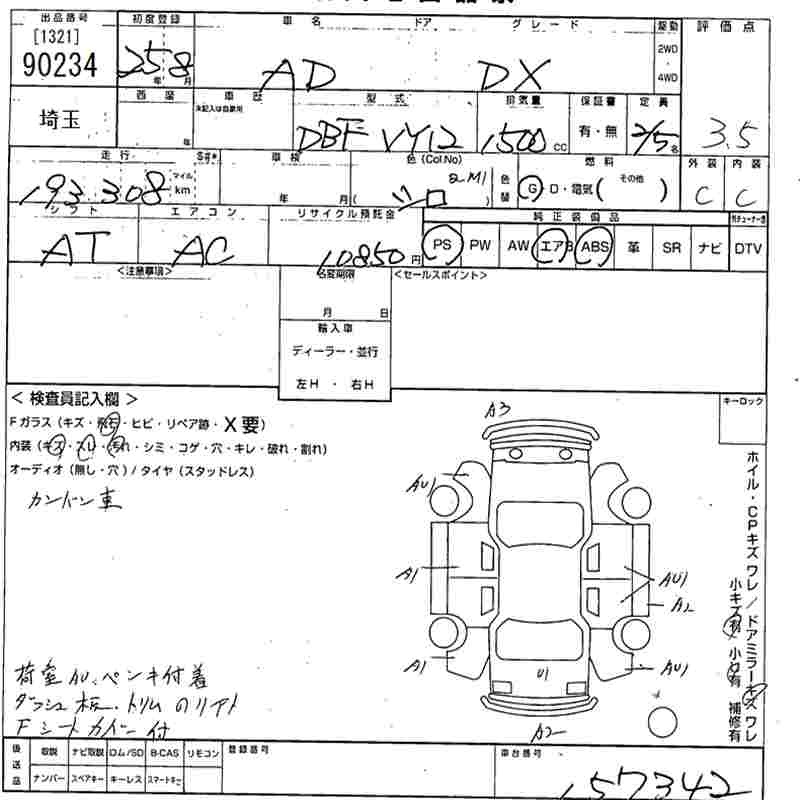 出品番号 初度登録 車名 ドア グレード 駆動 評価点
[1321]
90234 258 年 月 AD DX 2WD・4WD 3.5
埼玉 西暦 年 車歴 未記入は自家用 型式 排気量 保証書 定員
DBF VY12 1500 CC 有・無 2/5 名
走行 マイル km 車検 年 月 色(Col.No) 色替 燃料 外装 内装
193,308 シロ G・D・電気( その他 ) C C
シフト エアコン リサイクル預託金 純正装備品
AT AC 10850円 PS PW AW エアB ABS 革 SR ナビ DTV
<注意事項> 名変期限 <セールスポイント>
月 日
輸入車
ディーラー・並行
左H・右H
<検査員記入欄> キーロック
Fガラス(キズ・飛石・ヒビ・リペア跡・X要)
内装(キズ・スレ・汚れ・シミ・コゲ・穴・キレ・破れ・割れ)
オーディオ(無し・穴)/タイヤ(スタッドレス)
A3
AU1
A1 AU1
A2
A1 AU1
U1
A2
ホイル・CPキズワレ/ドアミラーキズワレ
小キズ有 小凹有 補修有
荷室AU、ペンキ付着
Fシートカバー付
後送品 取説 ナビ取説 ロム/SD B-CAS リモコン 登録番号 車台番号
ナンバー スペアキー キーレス スマートキー 157342